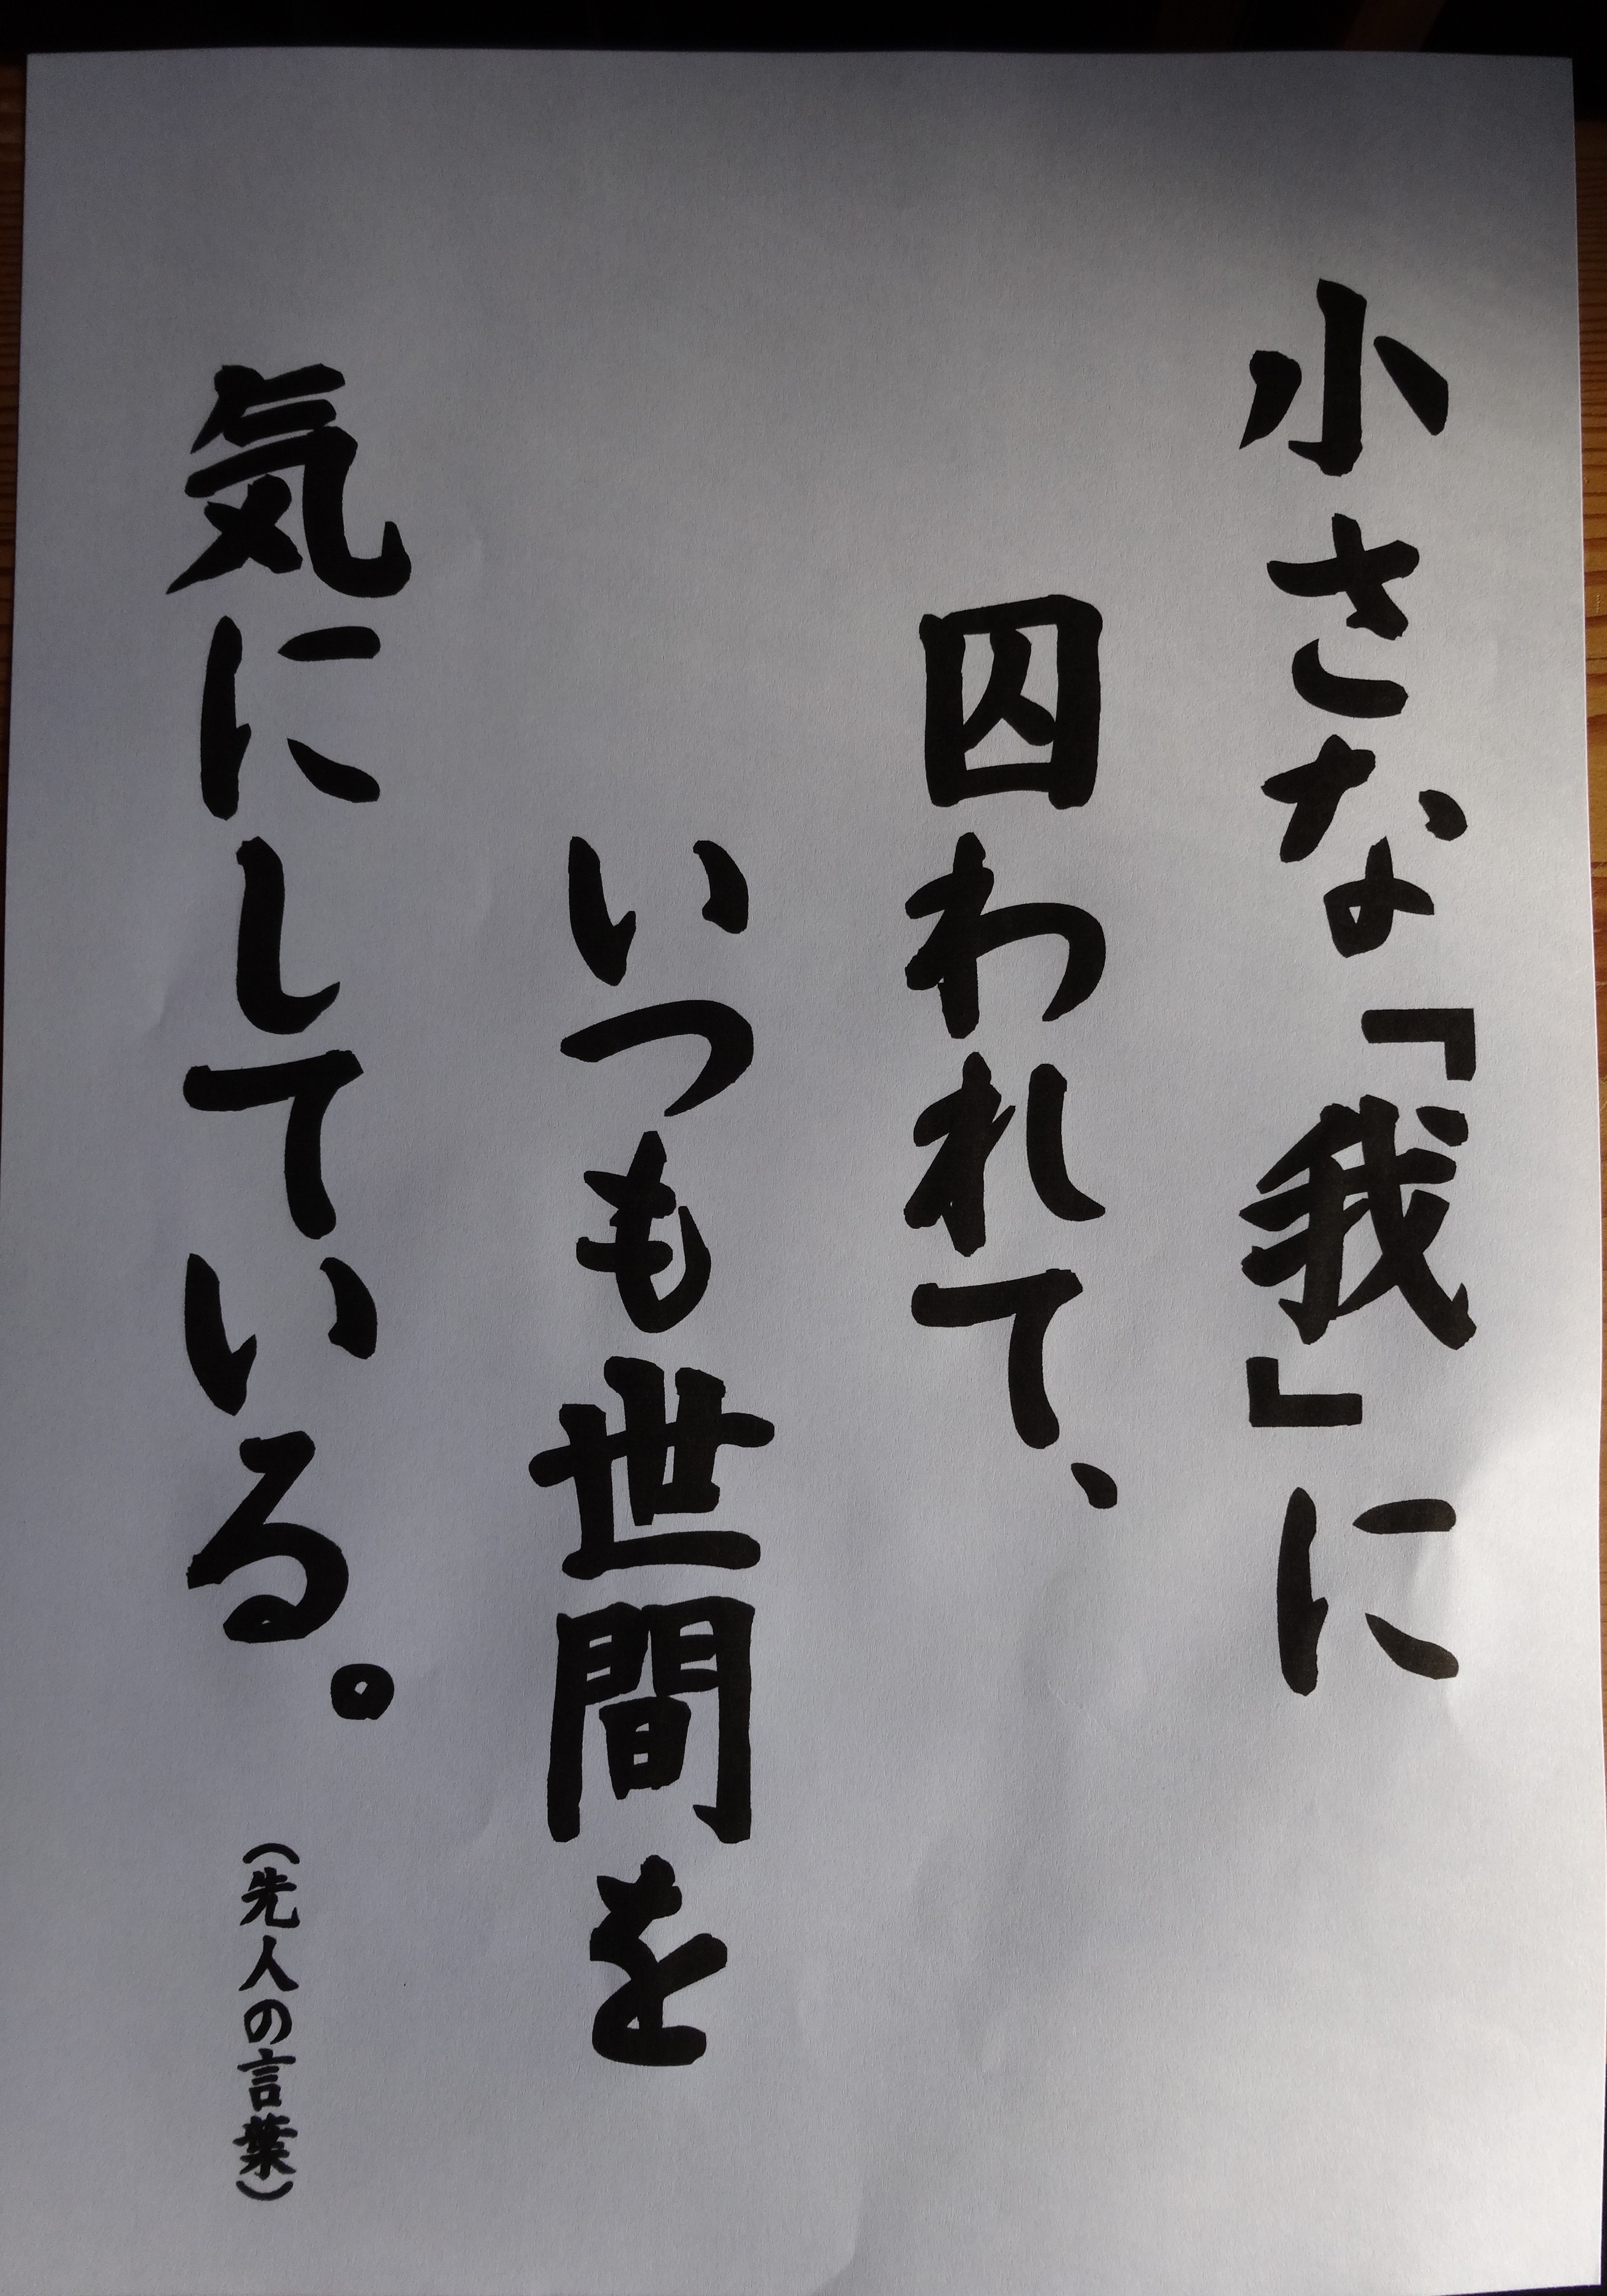 小さな「我」に
囚われて、
いつも世間を
気にしている。
(先人の言葉)